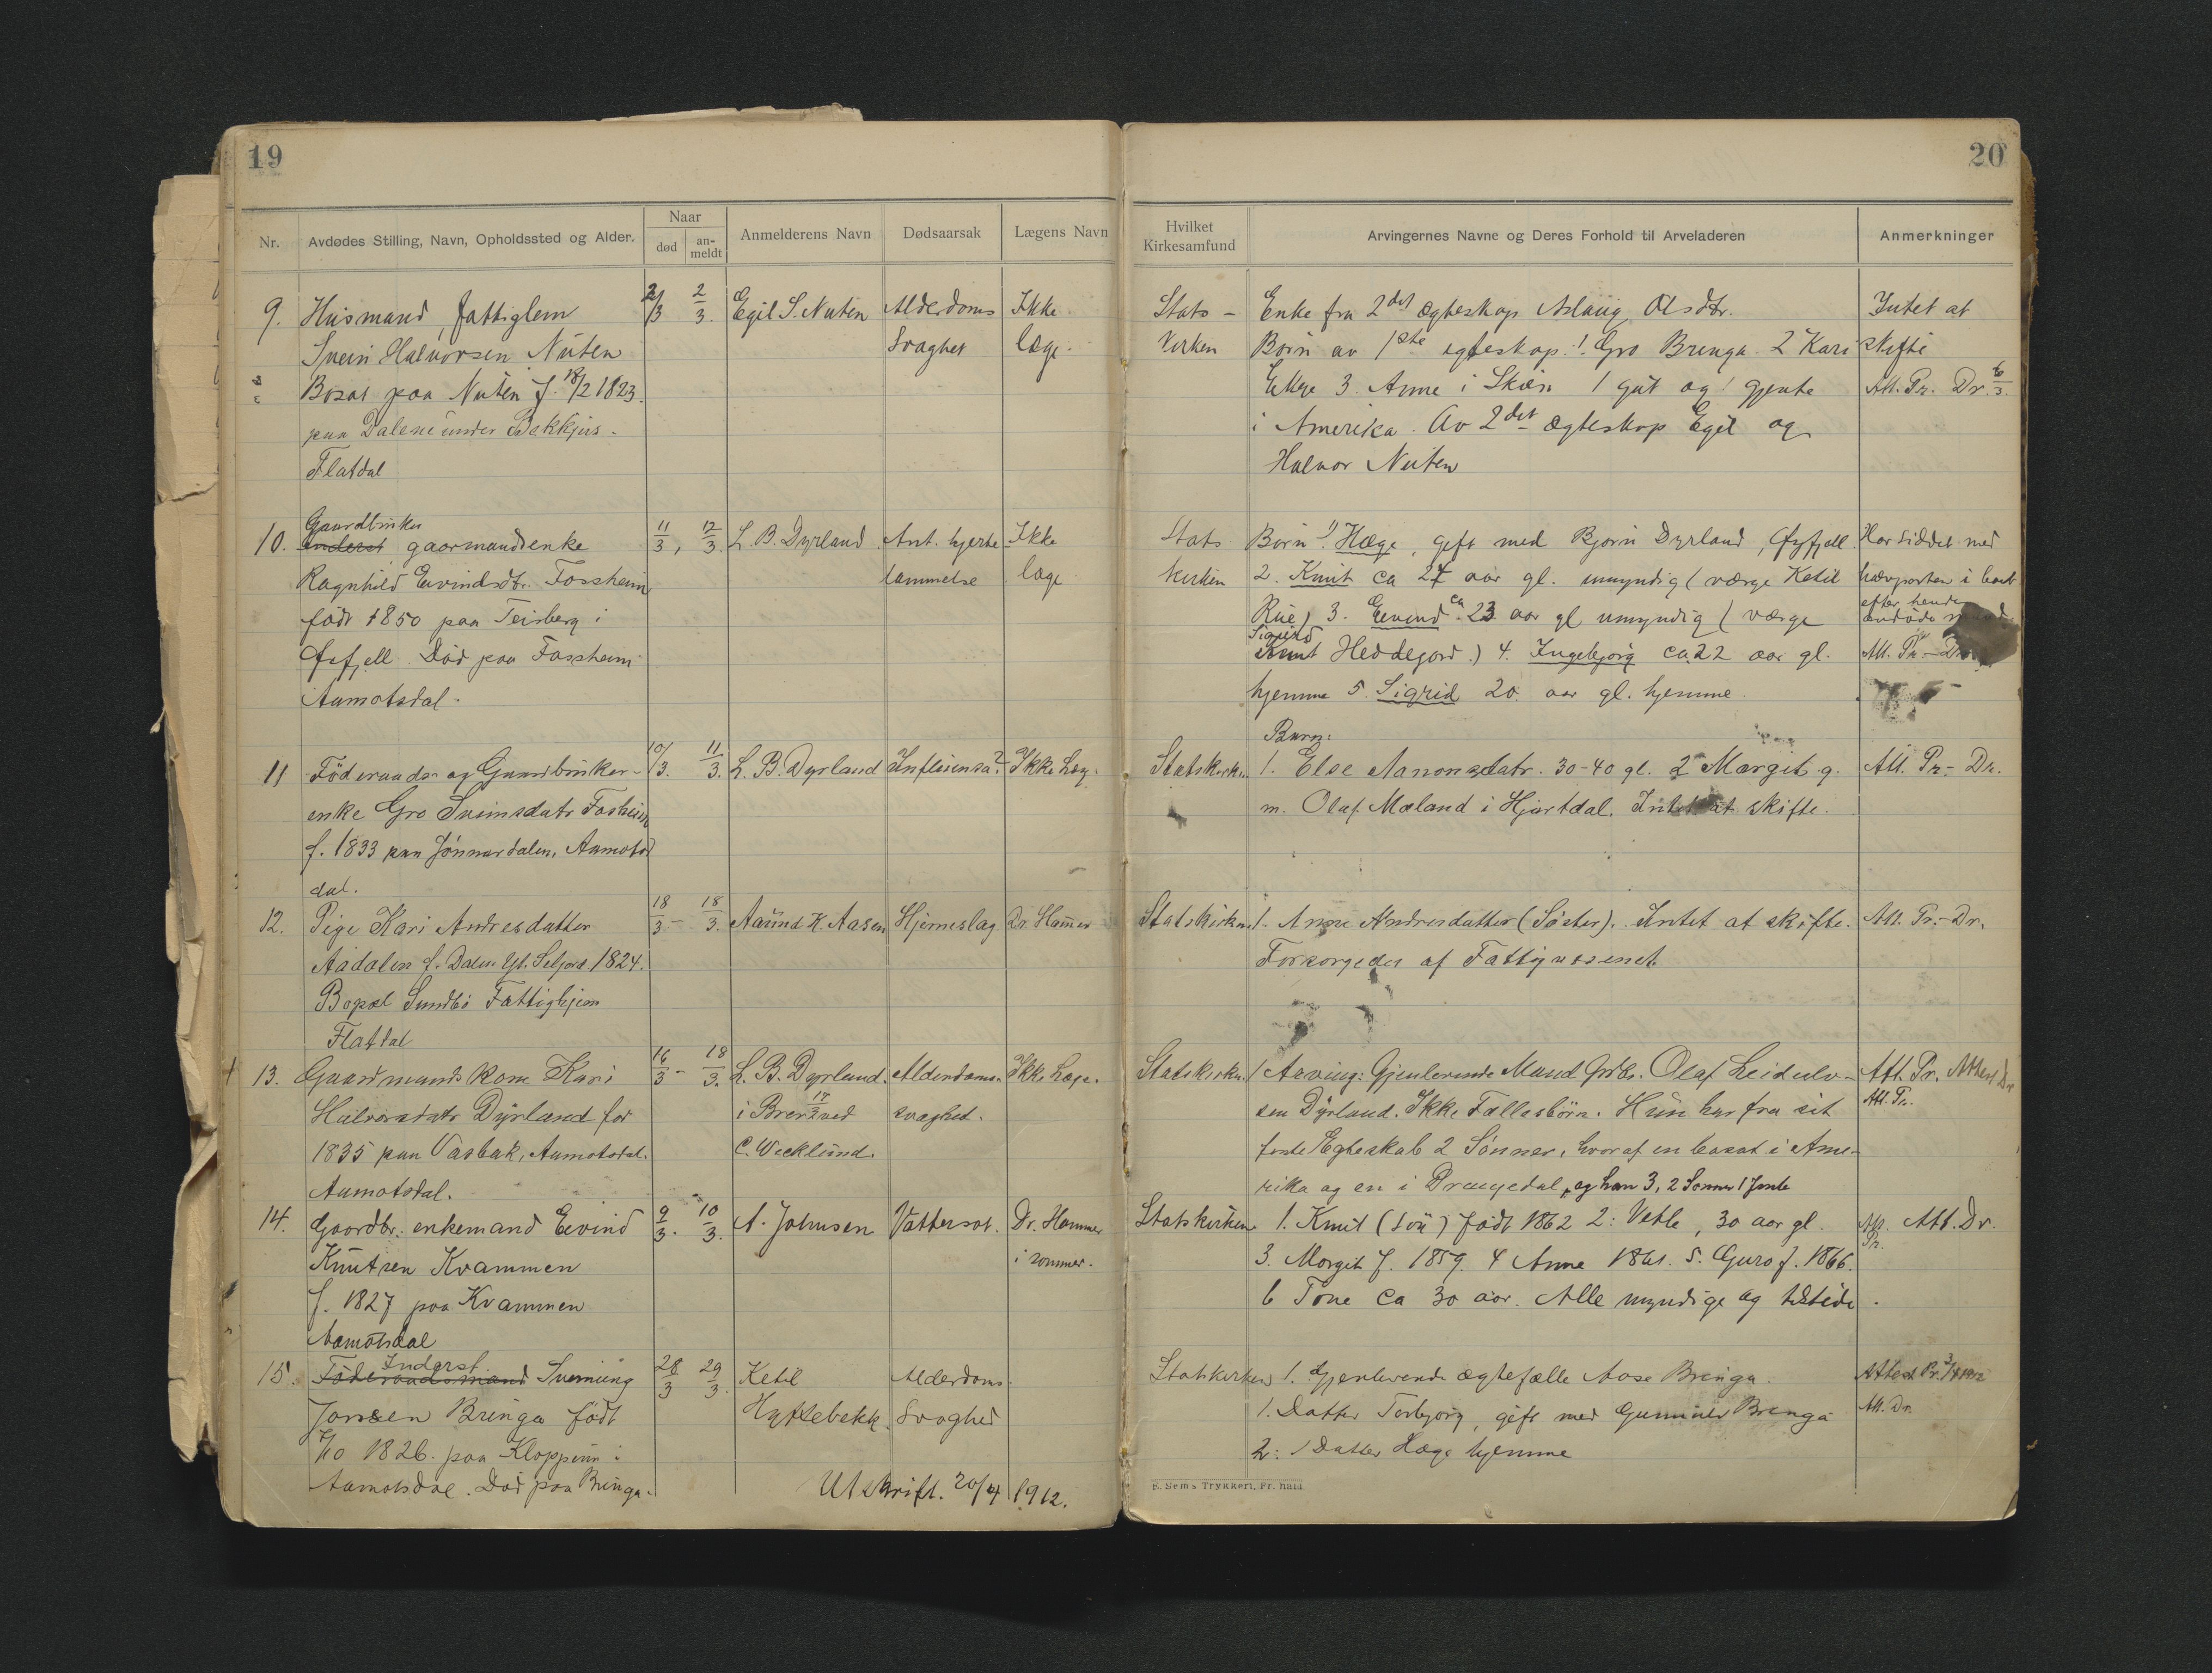 19
Nr.
Avdødes Stilling, Navn, Opholdssted og Alder.
Naar
død
an-
meldt
Anmelderens Navn
Dødsaarsak
Lægens Navn
9. Husmand, fattiglem
Svein Halvorsen Nuten
Bosat paa Nuten f. 18/2 1823.
paa Dalene under Bekkjus-
Flatdal
2/3 2/3.
Egil S. Nuten
Alderdoms
svaghet
Ikke
læge.
10. Gaardbruker
Inderst gaarmandsenke
Ragnhild Eivindsdtr. Fossheim
født 1850 paa Teisberg i
Øfsfjell. Død paa Fossheim
Aamotsdal.
11/3, 12/3.
L. B. Dyrland
Ant. hjerte
lammelse
Ikke
læge
11 Föderaads- og Gaardbruker-
enke Gro Sveinsdatr Fosheim
f. 1833 paa Jönnardalen, Aamots
dal.
10/3. 11/3.
L. B. Dyrland
Influensa?
Ikke Læg.
12. Pige Kari Andresdatter
Aadalen f. Dalen Yt. Seljord 1824.
Bopæl Sundbö Fattighjem
Flatdal
18/3 - 18/3.
Aamund K. Aasen
Hjerneslag
Dr. Hamer
13. Gaardmands Kone Kari
Halvorsdatr Dyrland för
1835 paa Vasbæk, Aamotsdal.
Aamotsdal.
16/3 - 18/3.
L. B. Dyrland.
i Brev 17/3 ved
C. Wecklund.
Alderdoms-
svaghed.
Ikke Læge.
14. Gaardbr. enkemand Eivind
Knutsen Kvammen
f. 1827 paa Kvammen
Aamotsdal
9/3. 10/3.
A. Johnsen
Vattersot.
Dr. Hammer
i sommer.
15. Inderst
Föderaadsmand Sveinung
Jonsen Bringa født
7/10 1826. paa Kloppenn i
Aamotsdal. Død paa Bringa.
28/3 29/3
Ketil
Hyttebekk
Alderdoms-
svaghed
Utskrift. 20/4 1912.
20
Hvilket
Kirkesamfund
Arvingernes Navne og Deres Forhold til Arveladeren
Anmerkninger
Stats-
kirken
Enke fra 2det Ægteskap Aslaug Olsdtr.
Børn av 1ste egteskap. 1. Gro Bringa 2 Kari
3. Anne i Skien 1 gut og 1 gjente
i Amerika. Av 2det Ægteskap Egil og
Halvor Nuten
Intet at
skifte
Att. Pr. Dr. 6/3.
Stats
kirken
Børn 1) Hæge, gift med Bjørn Dyrland, Øyfjell
2. Knut ca 27 aar gl. umyndig (værge Ketil
Rue) 3. Eevind ca 23 aar gl umyndig (værge
Sigurd
Knut Heddejord.) 4. Ingebjørg ca. 22 aar gl.
hjemme 5. Sigrid 20. aar gl. hjemme
Har siddet med
i boet
efter hendes
Att. Pr - Dr
Statskirken
Barn:
1. Else Aanonsdatr. 30-40 gl. 2 Margit g.
m. Olaf Mæland i Hjartdal. Intet at skifte.
Att. Pr.- Dr.
Statskirken.
1. Anne Andresdatter (Söster). Intet at skifte.
Forsorgedes af Fattigvæsenet.
Att. Pr.- Dr.
Statskirken.
1 Arving: Gjenlevende Mand Grdbr. Olaf Leidulv-
sen Dyrland. Ikke Fællesbörn. Hun har fra sit
förste Egteskab 2 Sönner, hvoraf en bosat i Ame-
rika og en i Drangedal, og han 3, 2 Sønner 1 Jente
Att. Pr. Attest Dr
Att. Pr.
Statskirken
1. Knut (sön) født 1862 2: Vetle, 30 aar gl.
3. Margit f. 1859. 4 Anne 1861. 5. Guro f. 1866.
6 Tone ca 30 aar. Alle myndige og tilstede.
Att. Att. Dr.
Pr.
Statskirken
1. Gjenlevende ægtefælle Aase Bringa.
1. Datter Torbjørg, gift med Gunnuld Bringa
2: 1 Datter Hæge hjemme
Attest Pr. 3/4 1912
Att. Dr.
E. Sems Trykkeri, Fr. hald